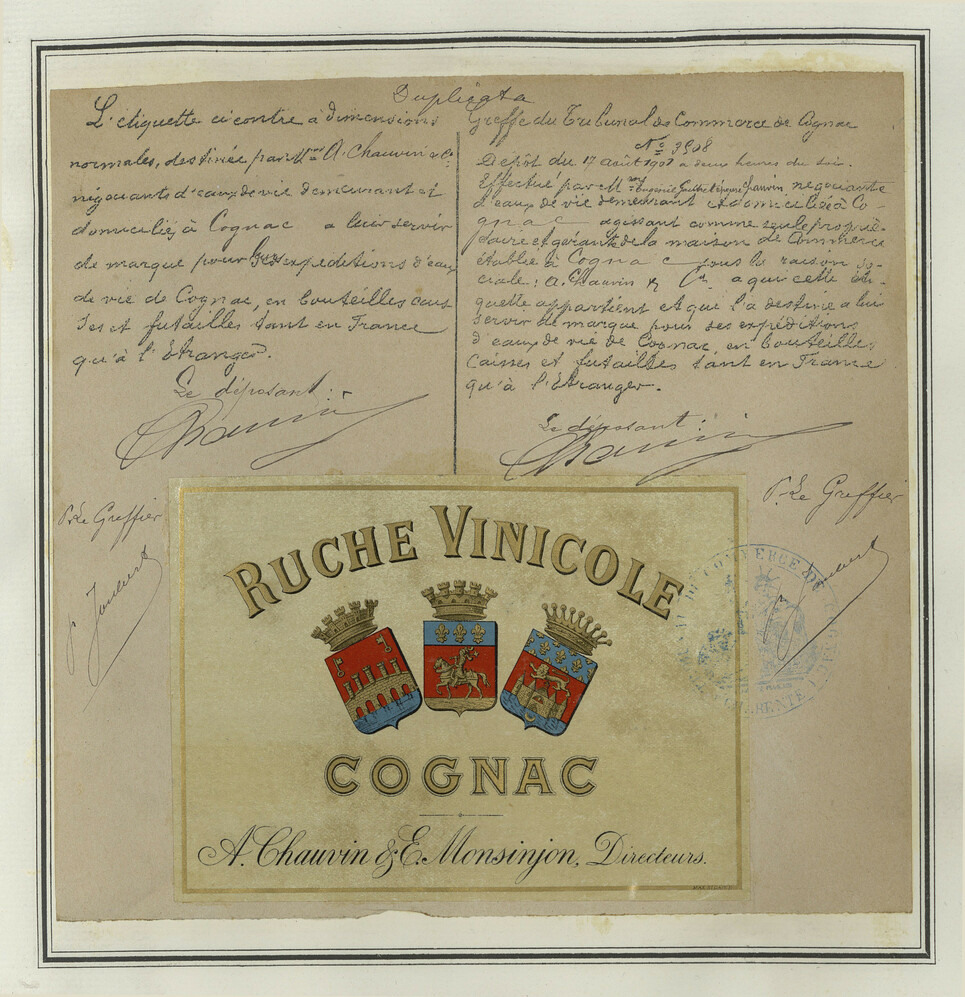 Duplicata
L'étiquette ci contre à dimensions
normales, destinée par Mme A. Chauvin & Cie
négociants d'eaux de vie demeurant et
domiciliés à Cognac a leur servir
de marque pour expeditions d'eaux
de vie de Cognac, en bouteilles cais
ses et futailles tant en France
qu'à l'Etranger.
Le déposant :
Chauvin
P. Le Greffier
P. Joubert
Greffe du Tribunal de Commerce de Cognac
No 3908
Depôt du 17 août 1901 a deux heures du soir.
Effectué par Mme Eugénie épouse Chauvin négociante
d'eaux de vie demeurant et domiciliée à Co-
gnac agissant comme seule proprié-
taire et gérante de la maison de Commerce
établie à Cognac sous la raison so-
ciale : A. Chauvin & Cie a qui cette éti-
quette appartient et qui l'a destine a lui
servir de marque pour ses expéditions
d'eaux de vie de Cognac en bouteilles
caisses et futailles tant en France
qu'à l'Etranger.
Le déposant :
Chauvin
P. Le Greffier
P. Joubert
RUCHE VINICOLE
COGNAC
A. Chauvin & E. Monsinjon, Directeurs.
COMMERCE DE
CHARENTE